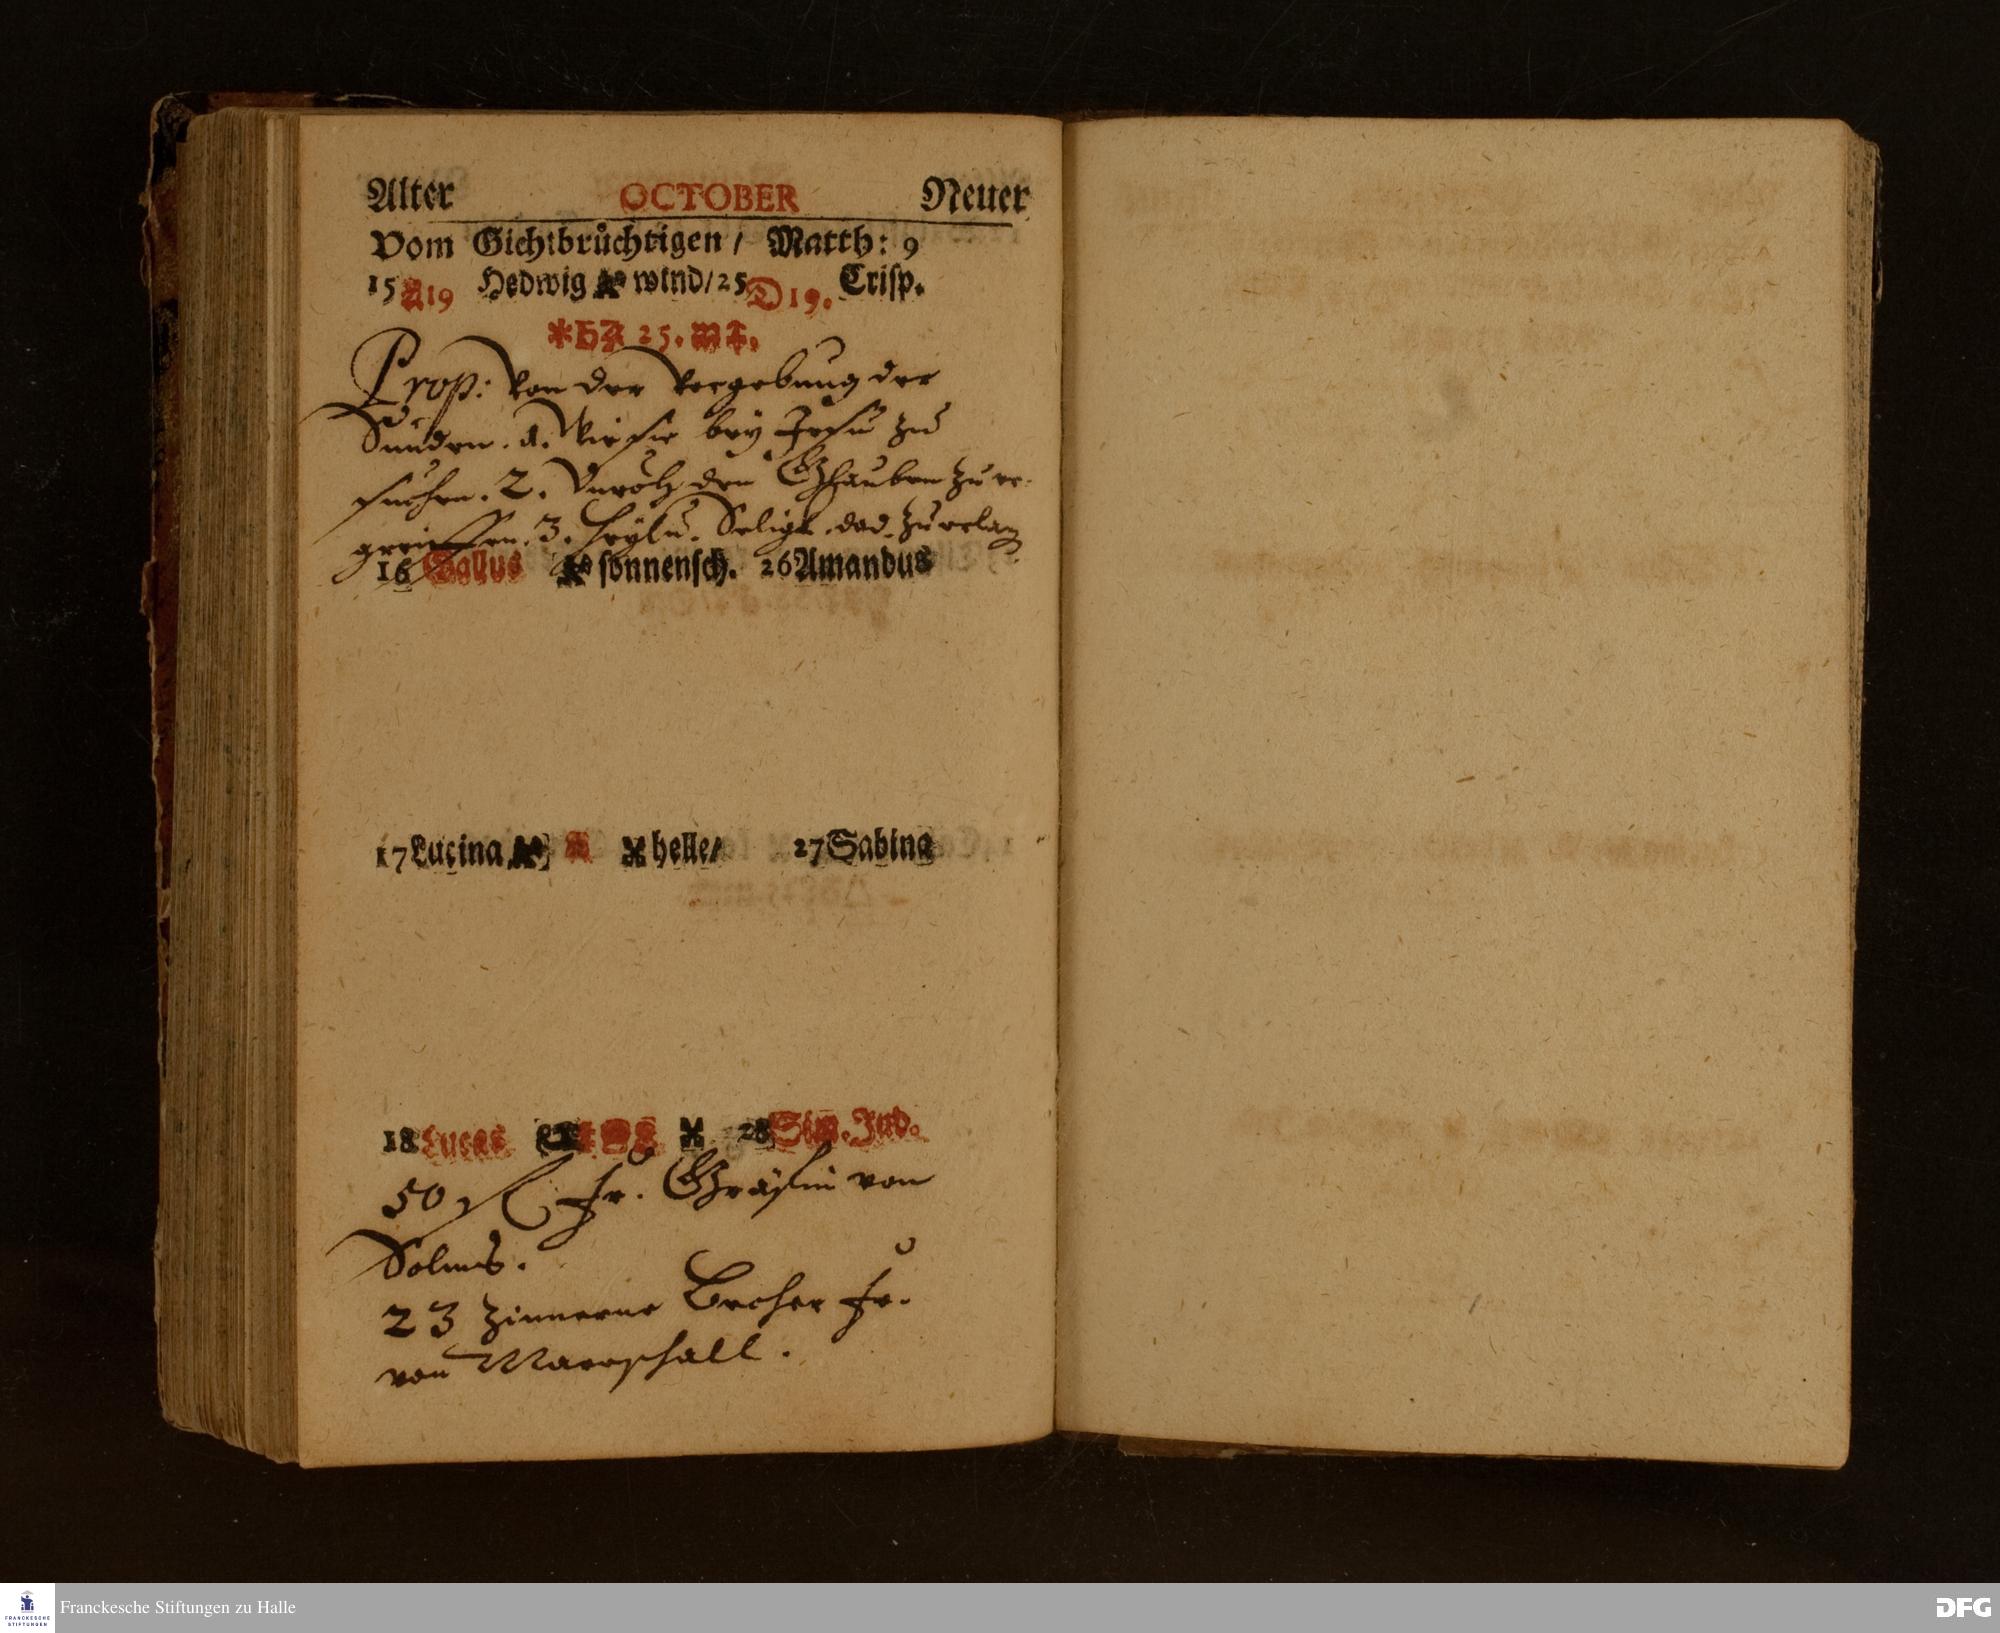 Alter OCTOBER Neuer
Vom Gichtbrůchtigen / Matth: 9
15 A 19 Hedwig wind/ 25 D 19. Crisp.
25.
Prop: Von der Vergebung der
Sünden. 1. Wie sie bey Jesu zu
suchen. 2. den Glauben zu er-
greiffen. 3. Seligk. zu erlang
16 Gallus sonnensch. 26 Amandus
17 Lucina helle/ 27 Sabina
18 Lucas 28 Sim. Jud.
50 fr. Gräfin von
Solms.
23 Zinnerne Becher fr.
von Marschall.
Franckesche Stiftungen zu Halle
FRANCKESCHE
STIFTUNGEN
DFG